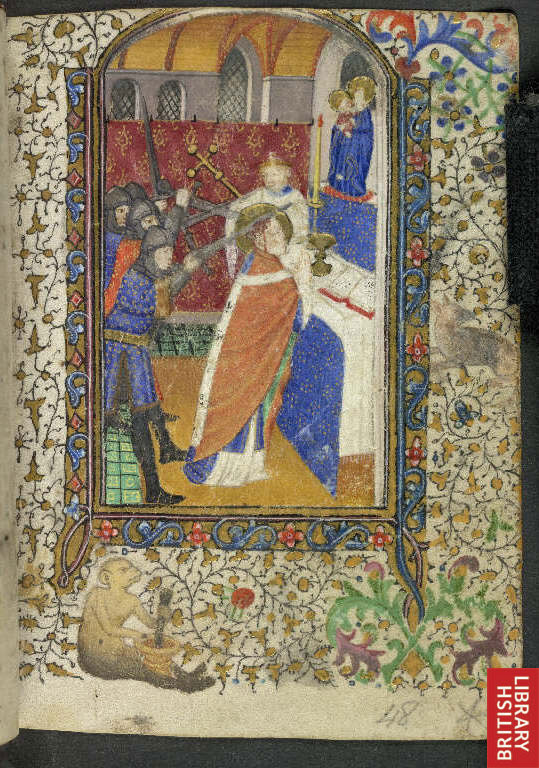 48
BRITISH
LIBRARY